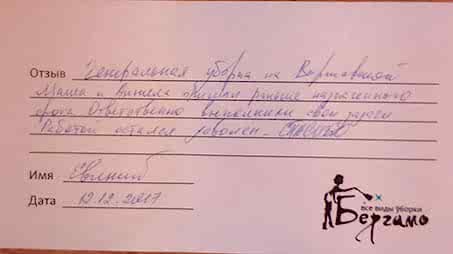 Отзыв Генеральная уборка на Варшавской
Маша и пришли раньше назначенного
срока Ответственно выполнили свои задачи
Работой остался доволен. СПАСИБО
Имя Евгений
Дата 12.12.2017
все виды уборки
Бергамо